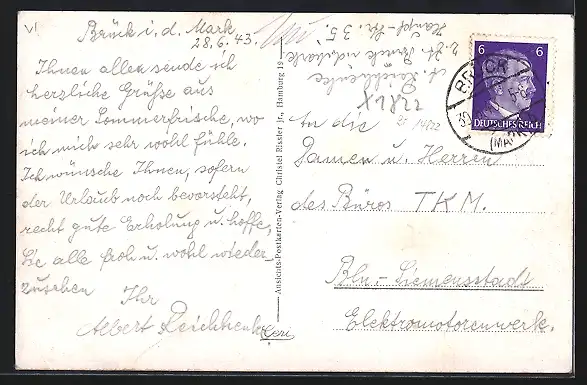 VI
Brück i. d. Mark,
28.6.43.
Ihnen allen sende ich
herzliche Grüße aus
meiner Sommerfrische, wo
ich mich sehr wohl fühle.
Ich wünsche Ihnen, sofern
der Urlaub noch bevorsteht,
recht gute Erholung u. hoffe,
Sie alle froh u. wohl wieder-
zusehen
Ihr
Albert Reichhenke
Ansichts-Postkarten-Verlag Christel Bissler Jr., Hamburg 19
z. Zt. Brück
Haupt-Str. 35.
An die
Damen u. Herren
des Büros TKM.
Bln-Siemensstadt
Elektromotorenwerk.
6 6
DEUTSCHES REICH
BRÜCK
(MARK)